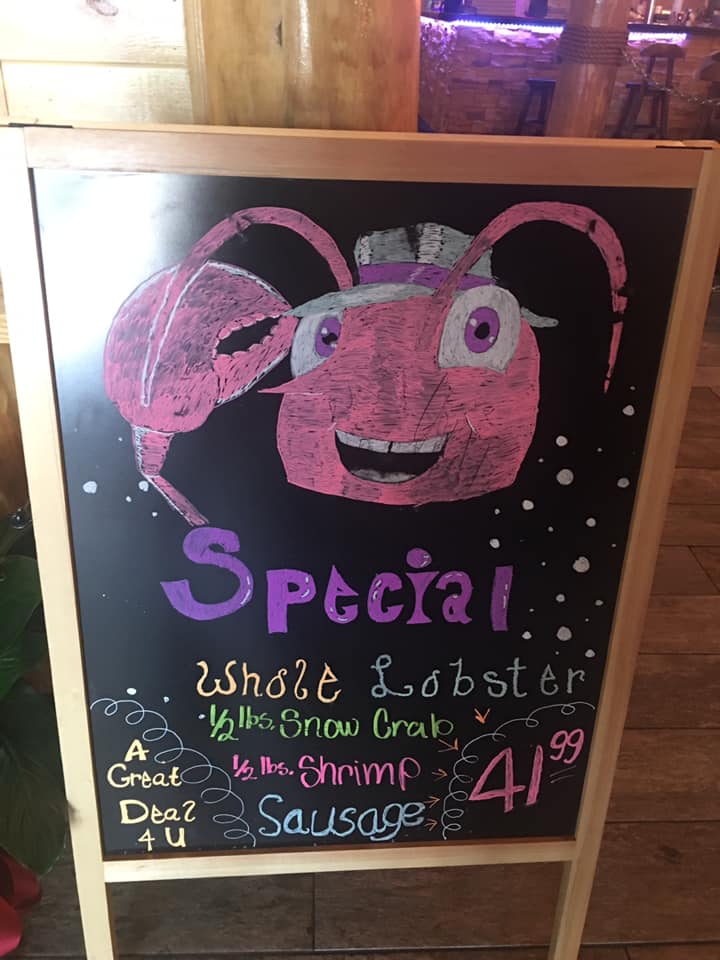 Special
Whole Lobster
·1/2 lbs. Snow Crab
1/2 lbs. Shrimp
Sausage
41.99
A
Great
Deal
4 U